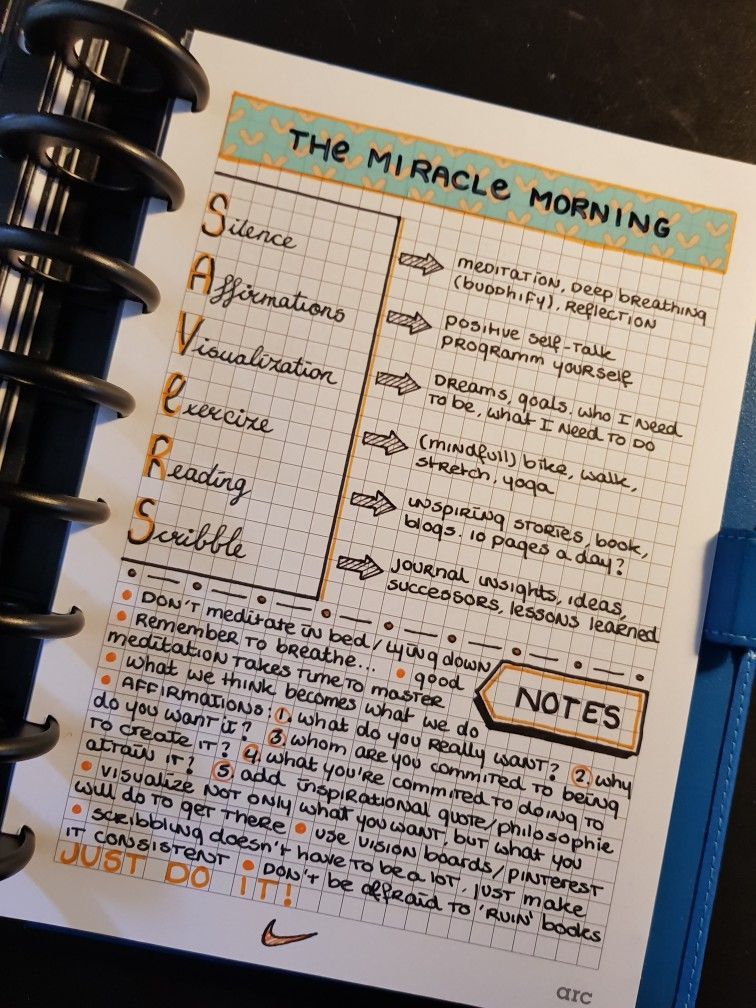 THE MIRACLE MORNING
Silence
Affirmations
Visualization
Exercize
Reading
Scribble
MEDITATION, DEEP BREATHING
(BUDDHIFY), REFLECTION
POSITIVE SELF-TALK
PROGRAMM YOURSELF
DREAMS, GOALS. WHO I NEED
TO BE, WHAT I NEED TO DO
(MINDFULL) BIKE, WALK,
STRETCH, YOGA
INSPIRING STORIES, BOOK,
BLOGS. 10 PAGES A DAY?
JOURNAL INSIGHTS, IDEAS,
SUCCESSORS, LESSONS LEARNED
• DON'T MEDITATE IN BED/LYING DOWN
• REMEMBER TO BREATHE... • GOOD
MEDITATION TAKES TIME TO MASTER
• WHAT WE THINK BECOMES WHAT WE DO
NOTES
• AFFIRMATIONS: 1. WHAT DO YOU REALLY WANT? 2. WHY
DO YOU WANT IT? 3. WHOM ARE YOU COMMITED TO BEING
TO CREATE IT? 4. WHAT YOU'RE COMMITED TO DOING TO
ATTAIN IT? 5. ADD INSPIRATIONAL QUOTE/PHILOSOPHIE
• VISUALIZE NOT ONLY WHAT YOU WANT, BUT WHAT YOU
WILL DO TO GET THERE • USE VISION BOARDS/PINTEREST
• SCRIBBLING DOESN'T HAVE TO BE A LOT, JUST MAKE
IT CONSISTENT • DON'T BE AFFRAID TO 'RUIN' BOOKS
JUST DO IT!
arc